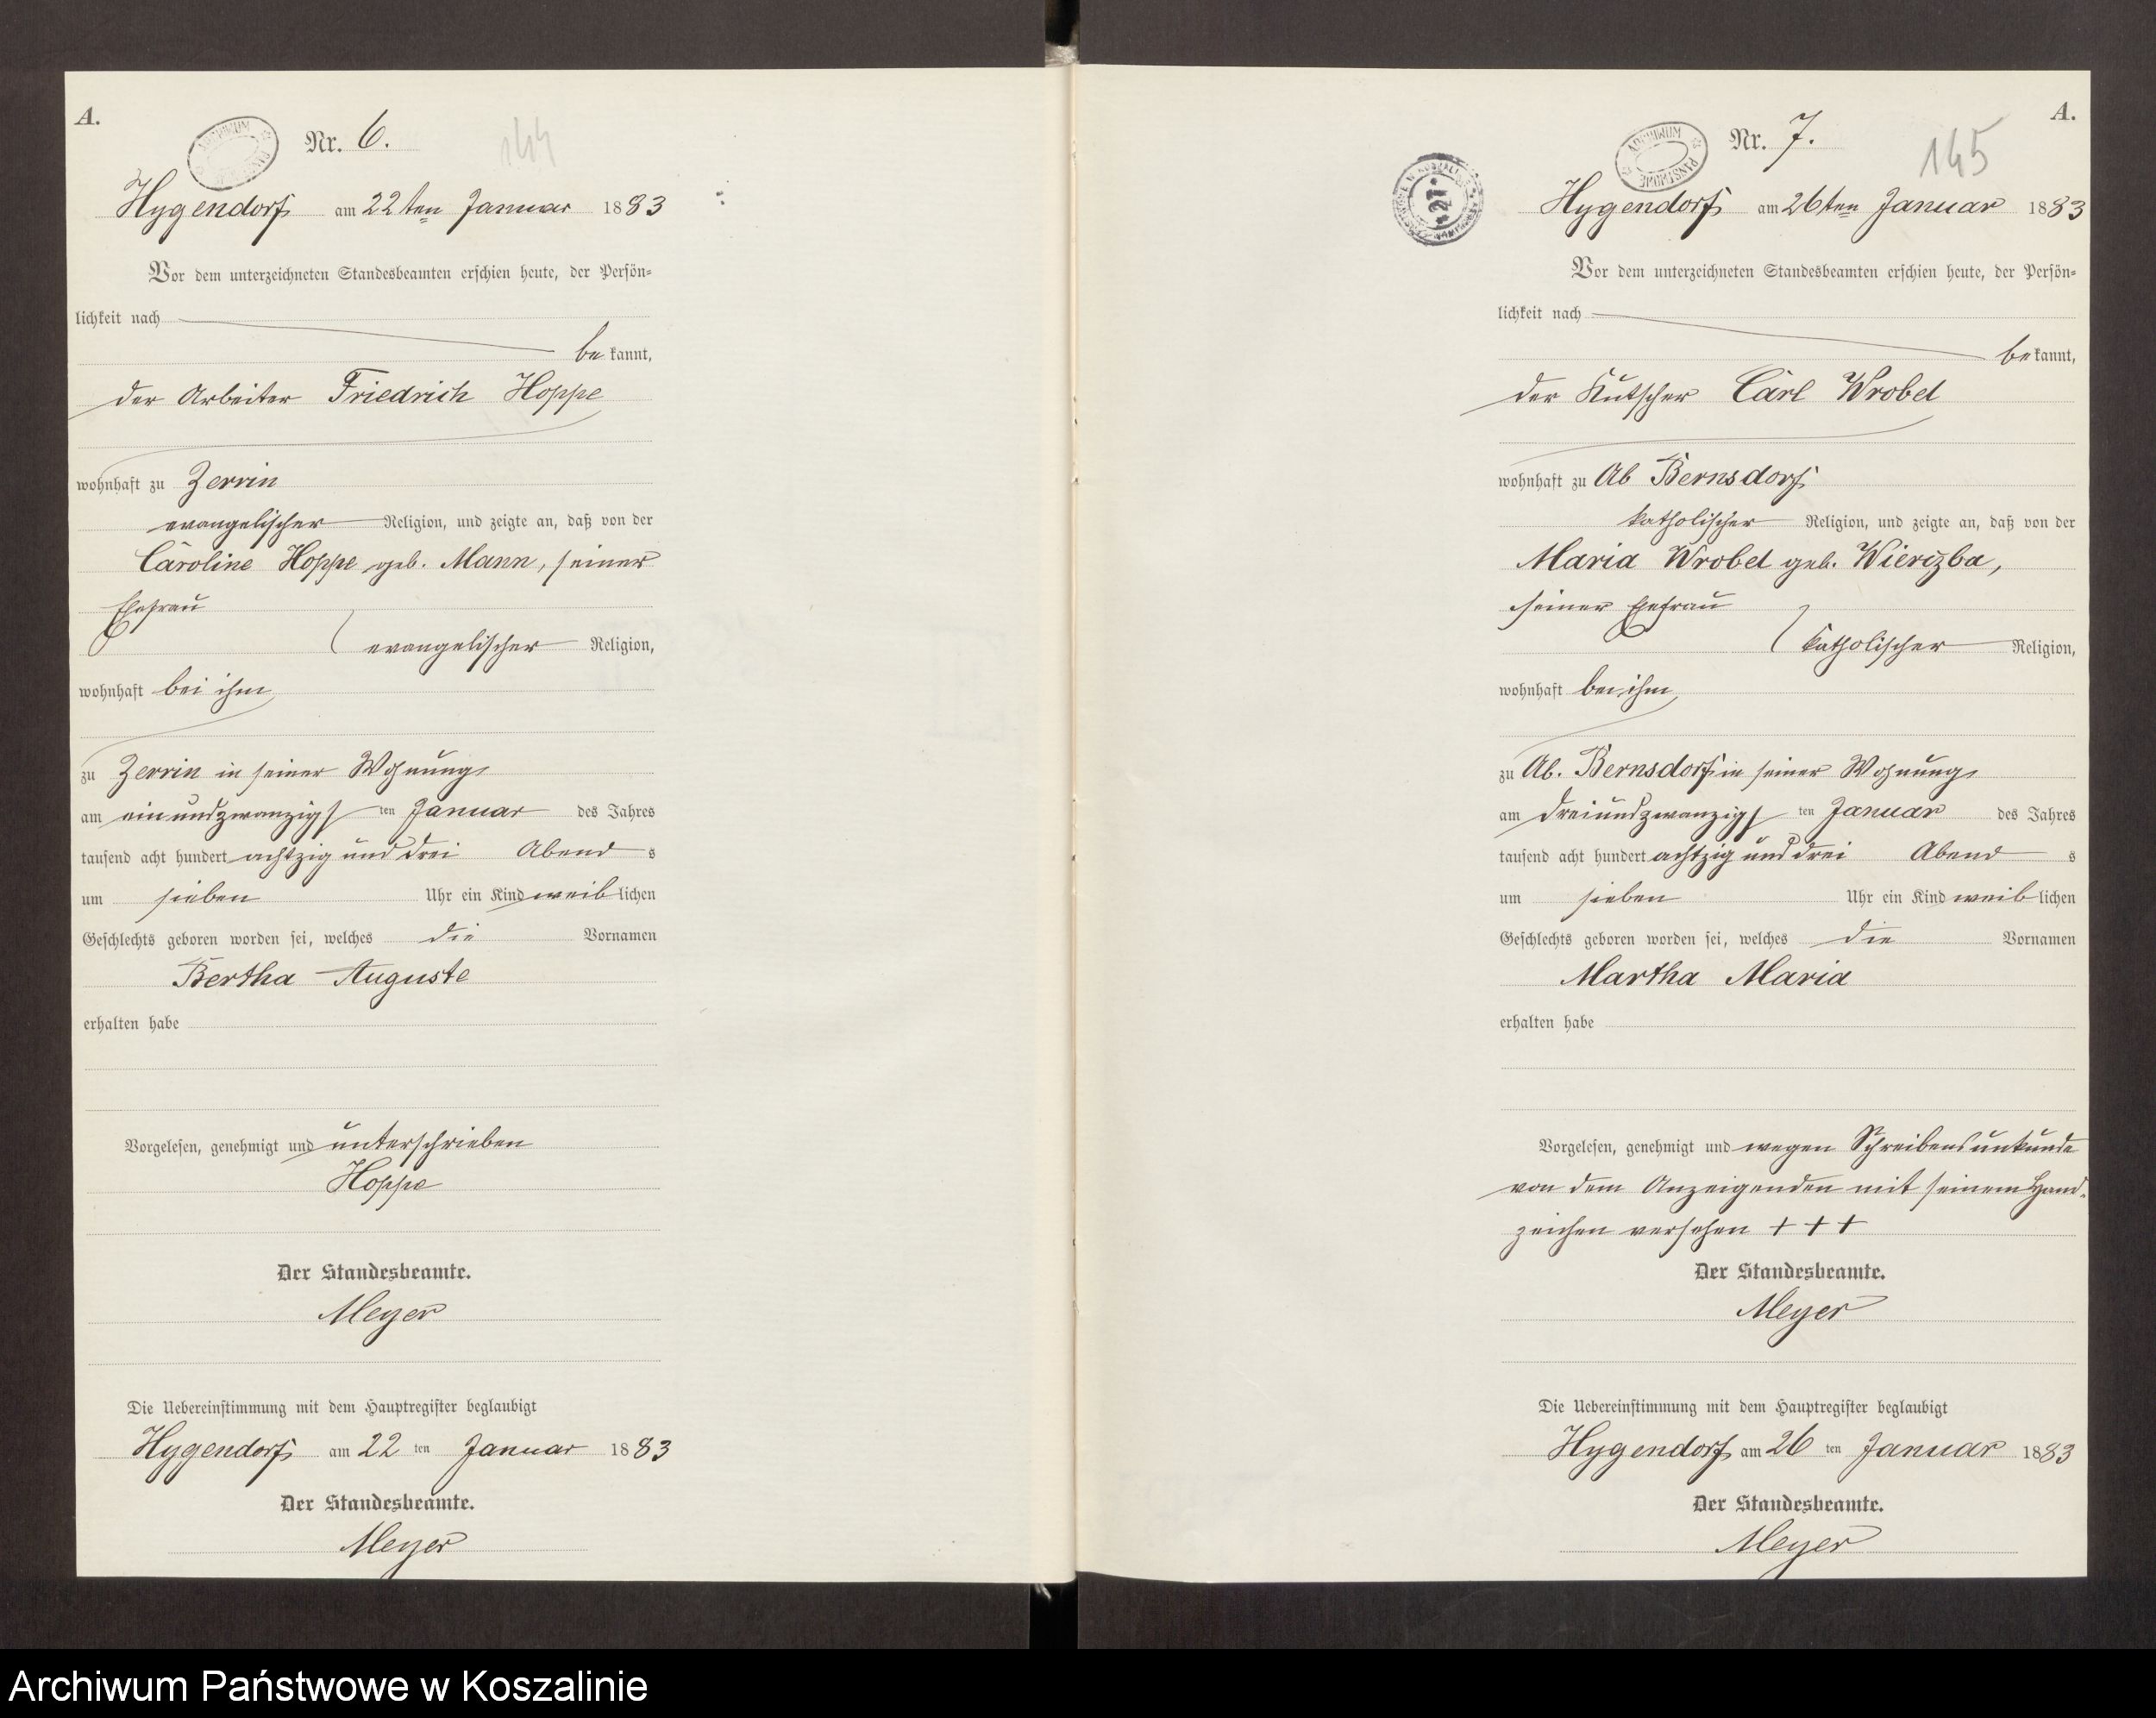 A.
Nr. 6.
144
Hygendorf am 22ten Januar 1883
Vor dem unterzeichneten Standesbeamten erschien heute, der Persön=
lichkeit nach
bekannt,
der Arbeiter Friedrich Hoppe
wohnhaft zu Zerrin
evangelischer Religion, und zeigte an, daß von der
Caroline Hoppe geb. Mann, seiner
Ehefrau
evangelischer Religion,
wohnhaft bei ihm
zu Zerrin in seiner Wohnung
am einundzwanzigsten Januar des Jahres
tausend acht hundert achtzig und drei Abends
um sieben Uhr ein Kind weiblichen
Geschlechts geboren worden sei, welches die Vornamen
Bertha Auguste
erhalten habe
Vorgelesen, genehmigt und unterschrieben
Hoppe
Der Standesbeamte.
Meyer
Die Uebereinstimmung mit dem Hauptregister beglaubigt
Hygendorf am 22 ten Januar 1883
Der Standesbeamte.
Meyer
A.
ARCHIWUM PAŃSTWOWE
27
Nr. 7.
145
Hygendorf am 26ten Januar 1883
Vor dem unterzeichneten Standesbeamten erschien heute, der Persön=
lichkeit nach
bekannt,
der Kutscher Carl Wrobel
wohnhaft zu Ab Bernsdorf
katholischer Religion, und zeigte an, daß von der
Maria Wrobel geb. Wierizba,
seiner Ehefrau
katholischer Religion,
wohnhaft bei ihm
zu Ab. Bernsdorf in seiner Wohnung
am dreiundzwanzigsten Januar des Jahres
tausend acht hundert achtzig und drei Abends
um sieben Uhr ein Kind weiblichen
Geschlechts geboren worden sei, welches die Vornamen
Martha Maria
erhalten habe
Vorgelesen, genehmigt und wegen Schreibensunkunde
von dem Anzeigenden mit seinem Hand-
zeichen versehen + + +
Der Standesbeamte.
Meyer
Die Uebereinstimmung mit dem Hauptregister beglaubigt
Hygendorf am 26 ten Januar 1883
Der Standesbeamte.
Meyer
Archiwum Państwowe w Koszalinie